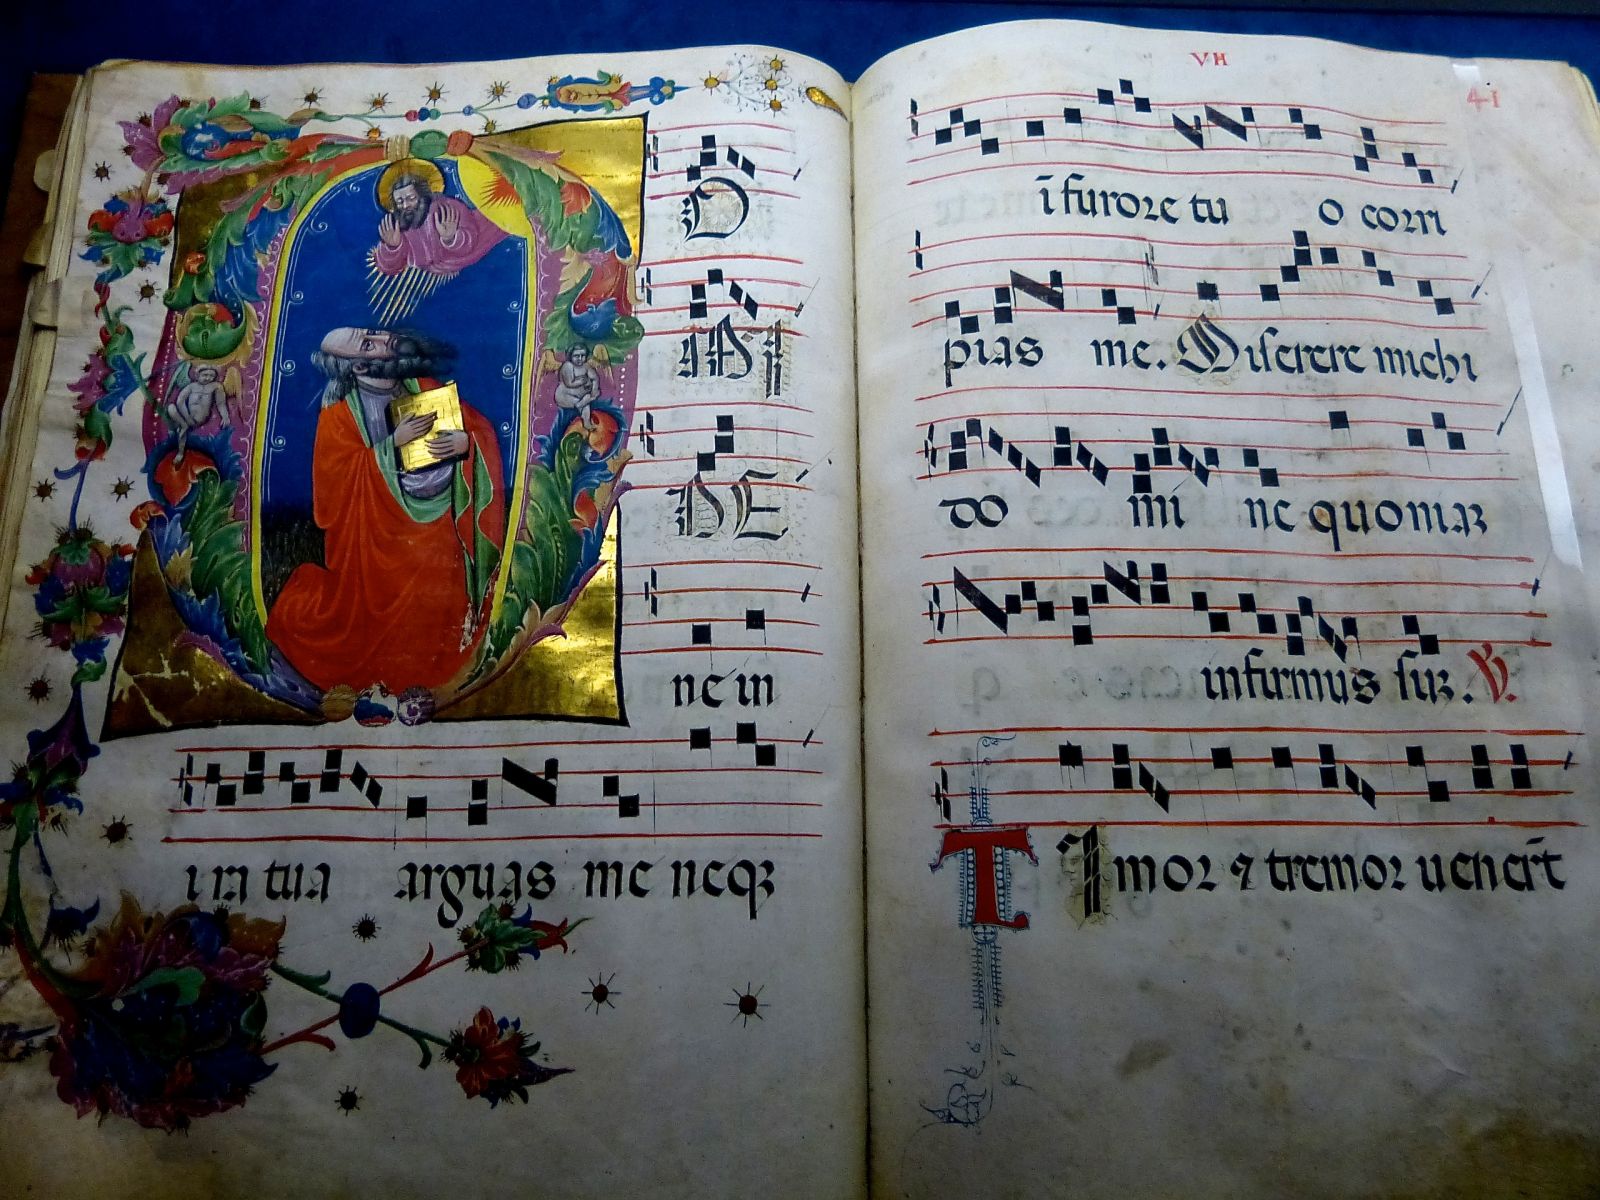 D
INE
DE
ne in
ira tua arguas me neqz
VII
41
ī furore tu o corri
pias me. Miserere michi
do mi ne quoniaz
infirmus suz. V.
T Imor & tremor uenerūt